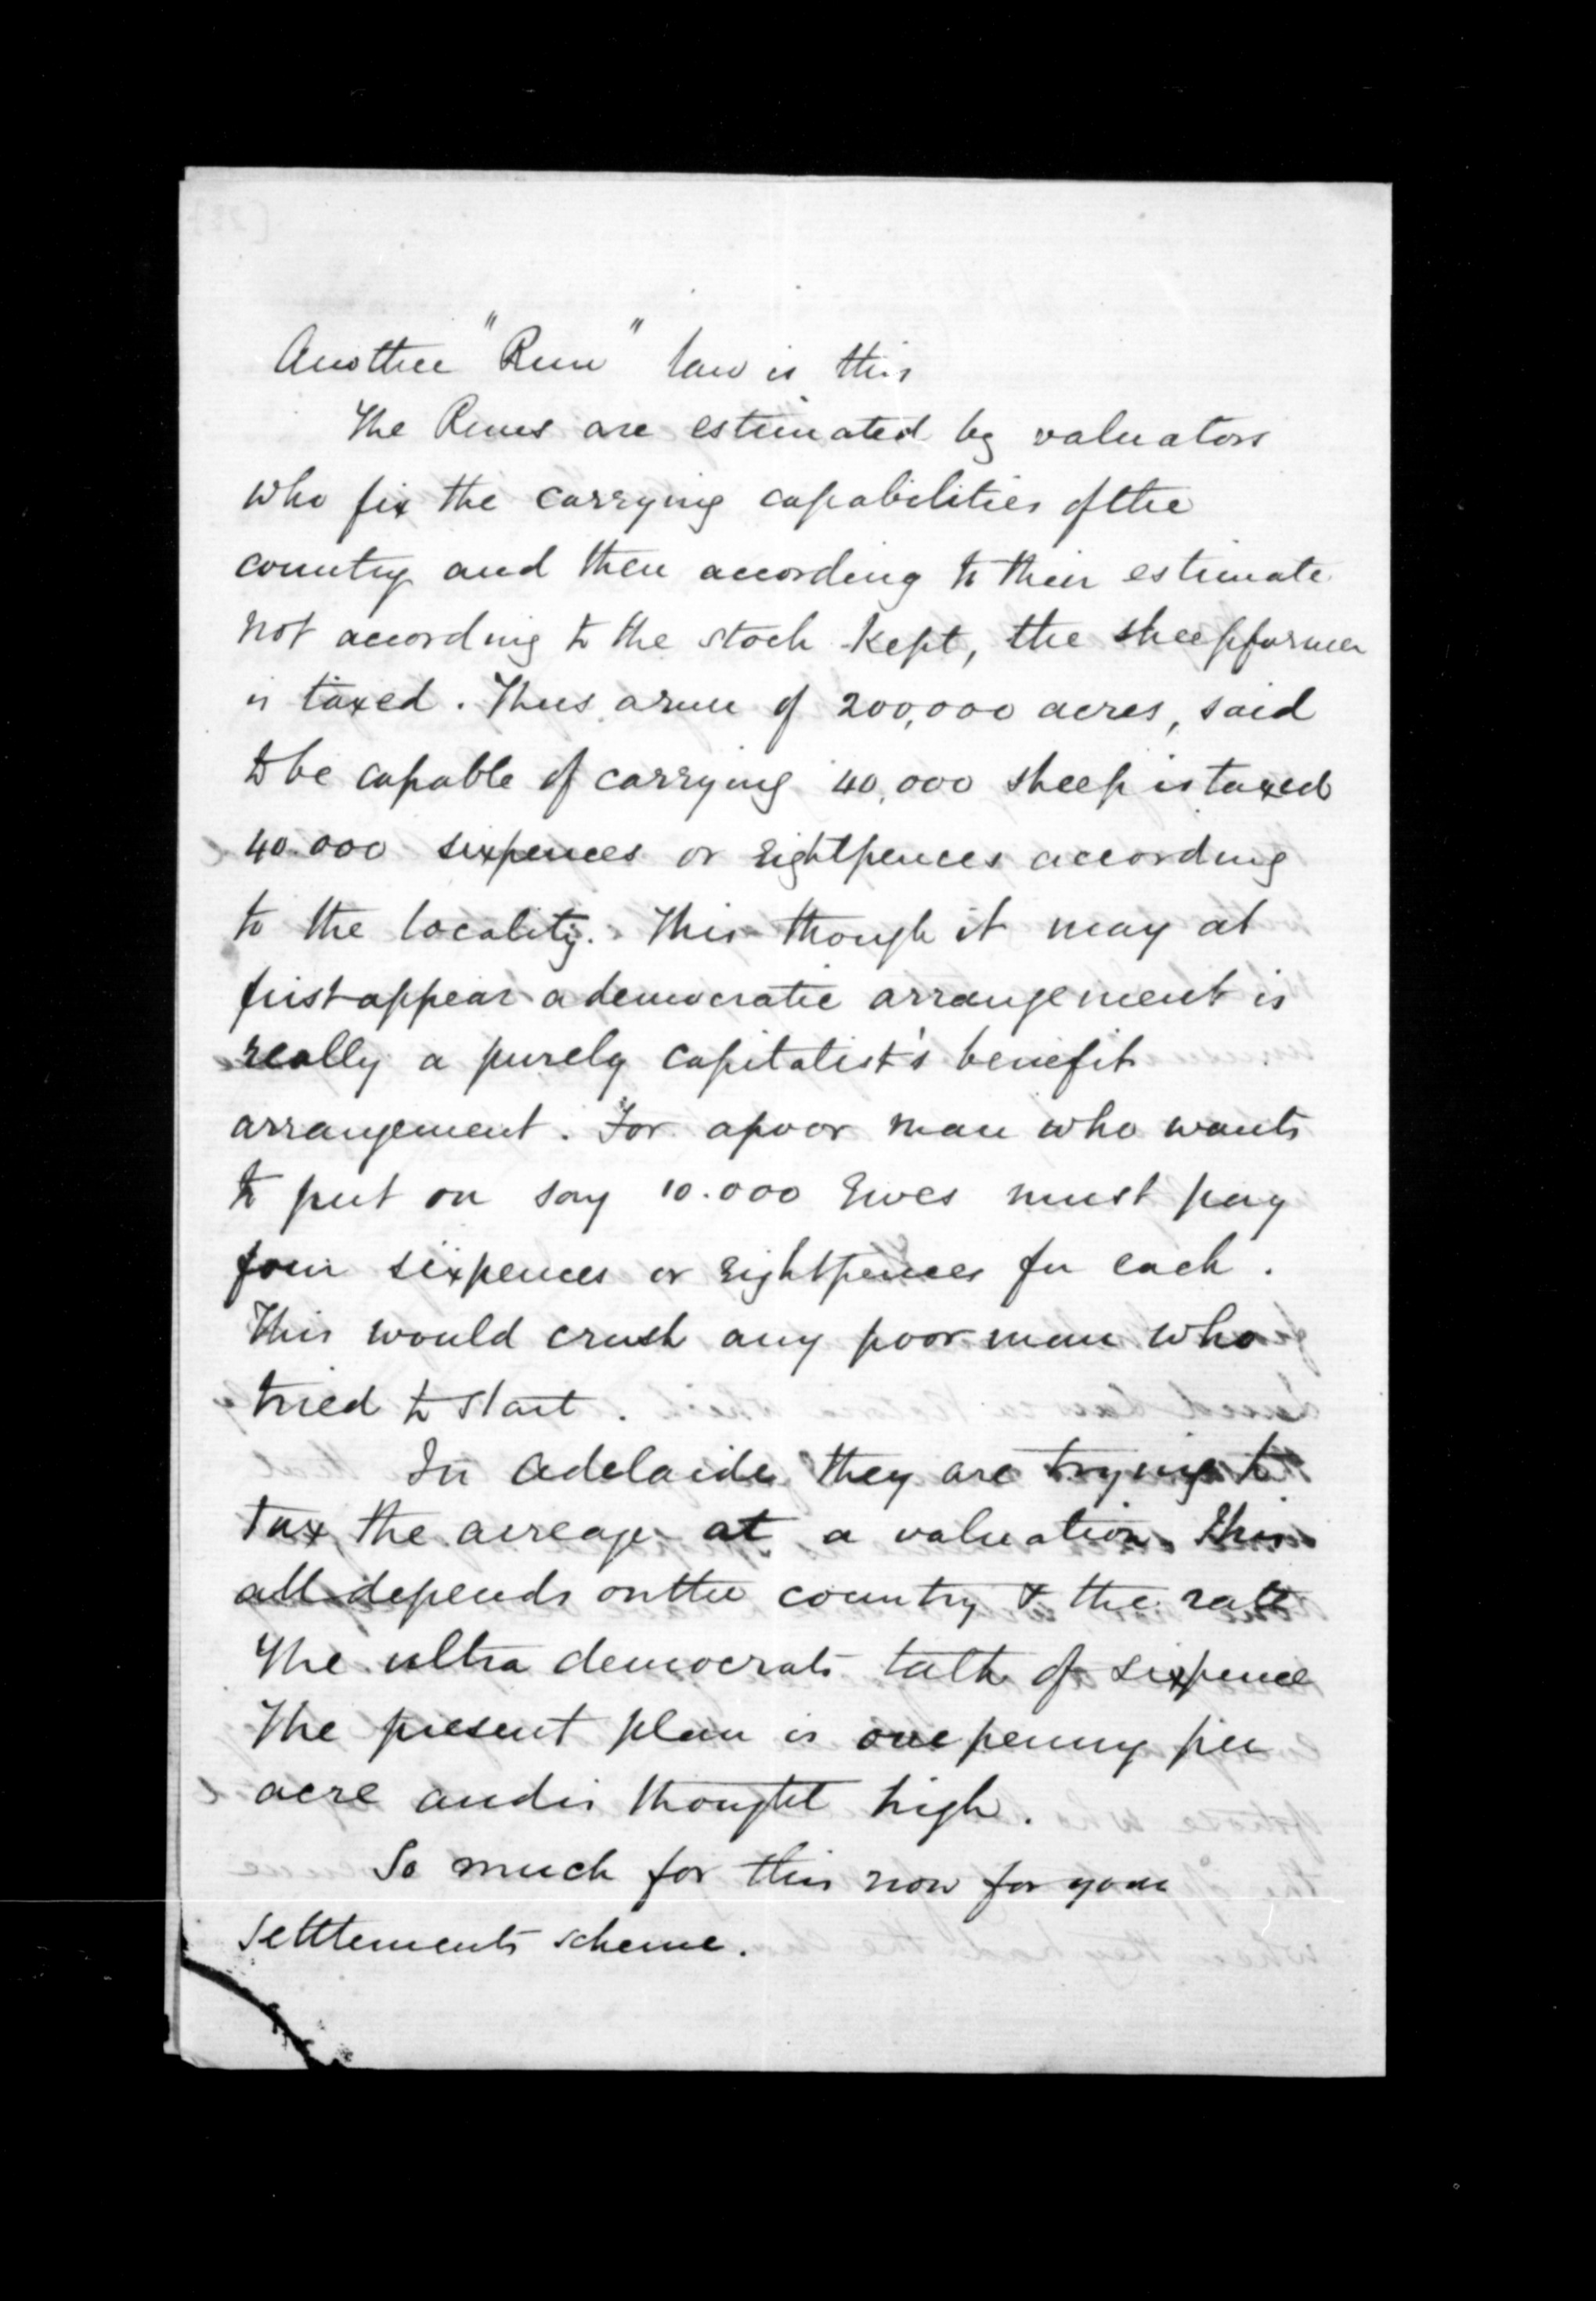 Another "Run" law is this
The Runs are estimated by valuators
who fix the carrying capabilities of the
country and then according to their estimate
not according to the stock kept, the sheepfarmer
is taxed. Thus a run of 200,000 acres, said
to be capable of carrying 40,000 sheep is taxed
40.000 sixpences or Eightpences according
to the locality. This though it may at
first appear a democratic arrangement is
really a purely capitalist's benefit
arrangement. For a poor man who wants
to put on say 10.000 Ewes must pay
four sixpences or Eightpences for each.
This would crush any poor man who
tried to start.
In Adelaide they are trying to
tax the acreage at a valuation. This
all depends on the country & the rate
The ultra democrats talk of sixpence
The present plan is one penny per
acre and is thought high.
So much for this now for your
settlements scheme.